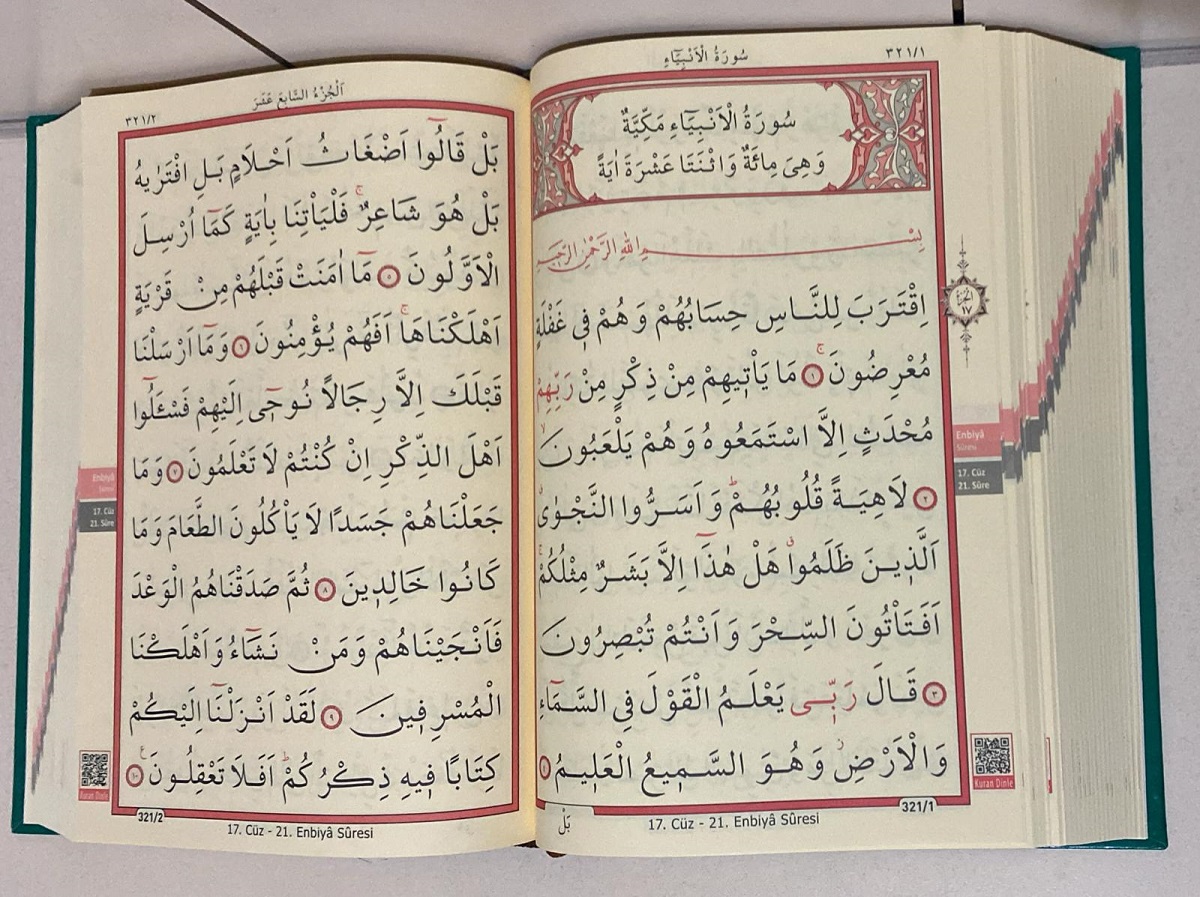 ٣٢١/١
سُورَةُ الْاَنْبِيَٓاءِ
سُورَةُ الْاَنْبِيَٓاءِ مَكِّيَّةٌ
وَهِىَ مِائَةٌ وَاثْنَتَا عَشْرَةَ اٰيَةً
بِسْمِ اللّٰهِ الرَّحْمٰنِ الرَّحِيمِ
اِقْتَرَبَ لِلنَّاسِ حِسَابُهُمْ وَهُمْ فٖى غَفْلَةٍ
مُعْرِضُونَۚ ﴿١﴾ مَا يَأْتٖيهِمْ مِنْ ذِكْرٍ مِنْ رَبِّهِمْ
مُحْدَثٍ اِلَّا اسْتَمَعُوهُ وَهُمْ يَلْعَبُونَۙ
﴿٢﴾ لَاهِيَةً قُلُوبُهُمْۜ وَاَسَرُّوا النَّجْوٰىۗ
اَلَّذٖينَ ظَلَمُواۗ هَلْ هٰذَٓا اِلَّا بَشَرٌ مِثْلُكُمْۚ
اَفَتَأْتُونَ السِّحْرَ وَاَنْتُمْ تُبْصِرُونَ
﴿٣﴾ قَالَ رَبّٖى يَعْلَمُ الْقَوْلَ فِى السَّمَٓاءِ
وَالْاَرْضِۘ وَهُوَ السَّمٖيعُ الْعَلٖيمُ ﴿٤﴾
بَلْ
321/1
17. Cüz - 21. Enbiyâ Sûresi
الجزء
١٧
Enbiyâ
Sûresi
17. Cüz
21. Sûre
Kuran Dinle
٣٢١/٢
اَلْجُزْءُ السَّابِعَ عَشَرَ
بَلْ قَالُٓوا اَضْغَاثُ اَحْلَامٍ بَلِ افْتَرٰيهُ
بَلْ هُوَ شَاعِرٌۚ فَلْيَأْتِنَا بِاٰيَةٍ كَمَٓا اُرْسِلَ
الْاَوَّلُونَ ﴿٥﴾ مَٓا اٰمَنَتْ قَبْلَهُمْ مِنْ قَرْيَةٍ
اَهْلَكْنَاهَاۚ اَفَهُمْ يُؤْمِنُونَ ﴿٦﴾ وَمَٓا اَرْسَلْنَا
قَبْلَكَ اِلَّا رِجَالًا نُوحٖٓى اِلَيْهِمْ فَسْـَٔلُٓوا
اَهْلَ الذِّكْرِ اِنْ كُنْتُمْ لَا تَعْلَمُونَ ﴿٧﴾ وَمَا
جَعَلْنَاهُمْ جَسَدًا لَا يَأْكُلُونَ الطَّعَامَ وَمَا
كَانُوا خَالِدٖينَ ﴿٨﴾ ثُمَّ صَدَقْنَاهُمُ الْوَعْدَ
فَاَنْجَيْنَاهُمْ وَمَنْ نَشَٓاءُ وَاَهْلَكْنَا
الْمُسْرِفٖينَ ﴿٩﴾ لَقَدْ اَنْزَلْنَٓا اِلَيْكُمْ
كِتَابًا فٖيهِ ذِكْرُكُمْۜ اَفَلَا تَعْقِلُونَࣖ ﴿١٠﴾
321/2
17. Cüz - 21. Enbiyâ Sûresi
Enbiyâ
Sûresi
17. Cüz
21. Sûre
Kuran Dinle